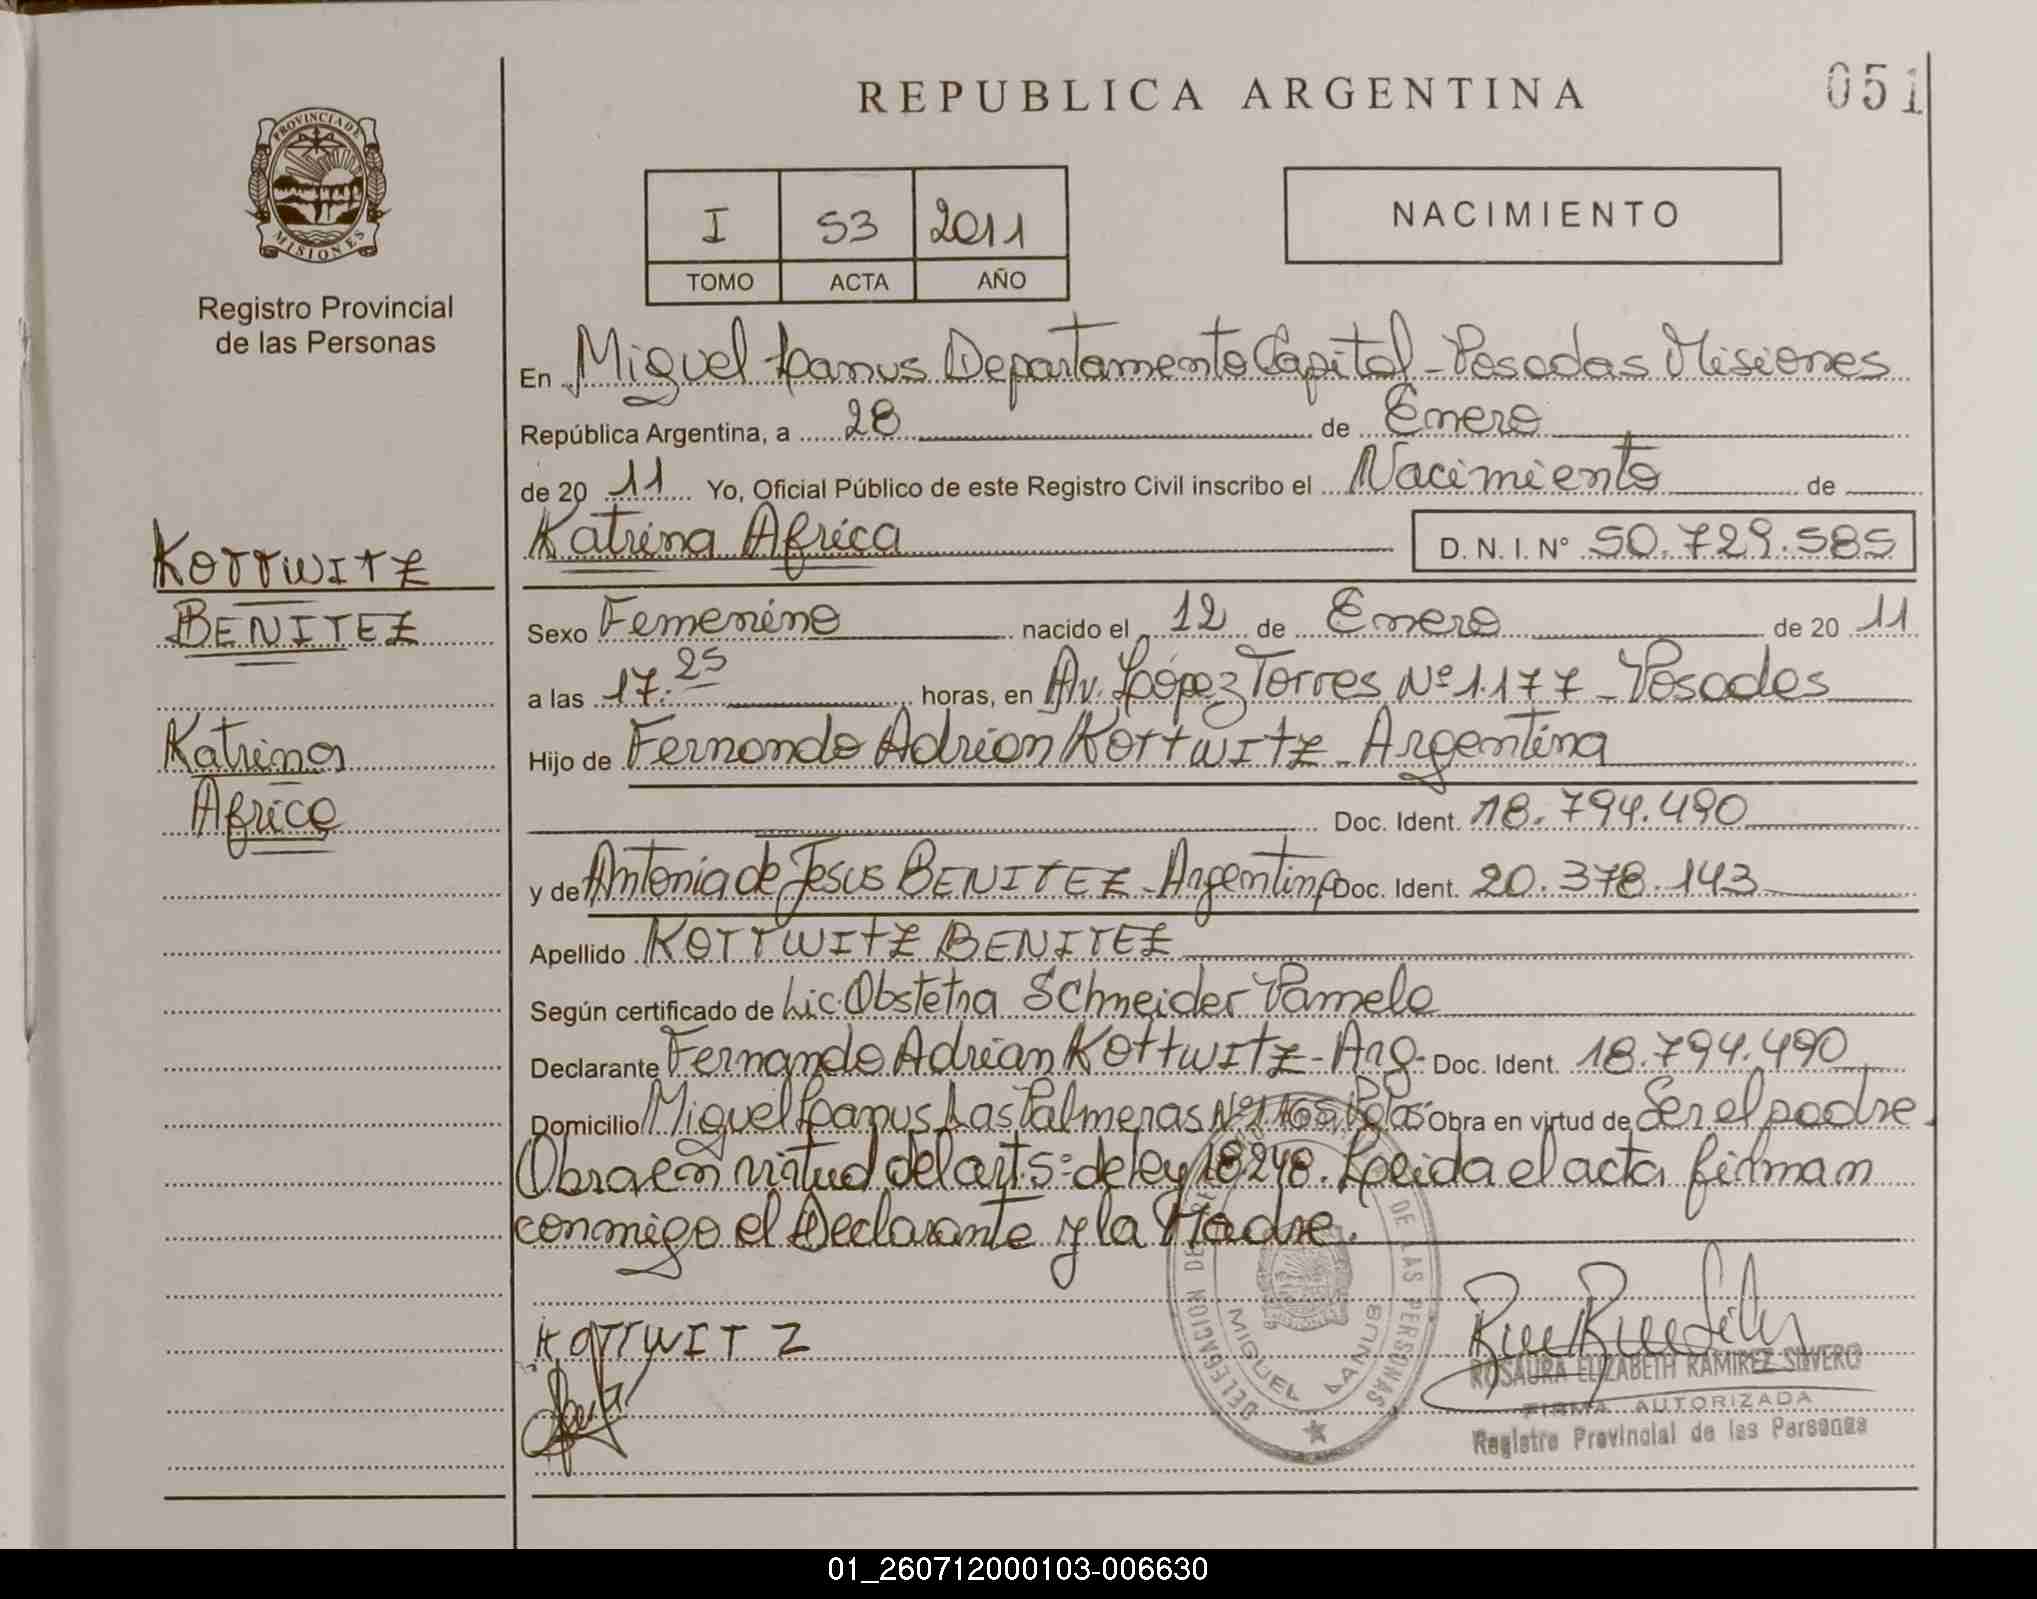 REPUBLICA ARGENTINA
051
PROVINCIA DE
MISIONES
Registro Provincial
de las Personas
I S3 2011
TOMO ACTA AÑO
NACIMIENTO
En Miguel Lanus Departamento Capital - Posadas Misiones
República Argentina, a 28 de Enero
de 20 11 Yo, Oficial Público de este Registro Civil inscribo el Nacimiento de
Katrina Africa D. N. I. Nº 50.729.585
KOTTWITZ
BENITEZ
Katrina
Africa
Sexo Femenino nacido el 12 de Enero de 20 11
a las 17.25 horas, en Av. López Torres Nº 1.177 - Posadas
Hijo de Fernando Adrian Kottwitz - Argentina
Doc. Ident. 18.794.490
y de Antonia de Jesus BENITEZ - Argentina Doc. Ident. 20.378.143
Apellido KOTTWITZ BENITEZ
Según certificado de Lic. Obstetra Schneider Pamela
Declarante Fernando Adrian Kottwitz - Arg. Doc. Ident. 18.794.490
Domicilio Miguel Lanus Las Palmeras Nº Obra en virtud de Ser el padre.
Obra en virtud del art. 5º de ley 18248. Leida el acta firman
conmigo el Declarante y la Madre.
KOTTWITZ
DELEGACION DE LAS PERSONAS
MIGUEL LANUS
ROSAURA ELIZABETH RAMIREZ SILVERO
FIRMA AUTORIZADA
Registro Provincial de las Personas
01_260712000103-006630